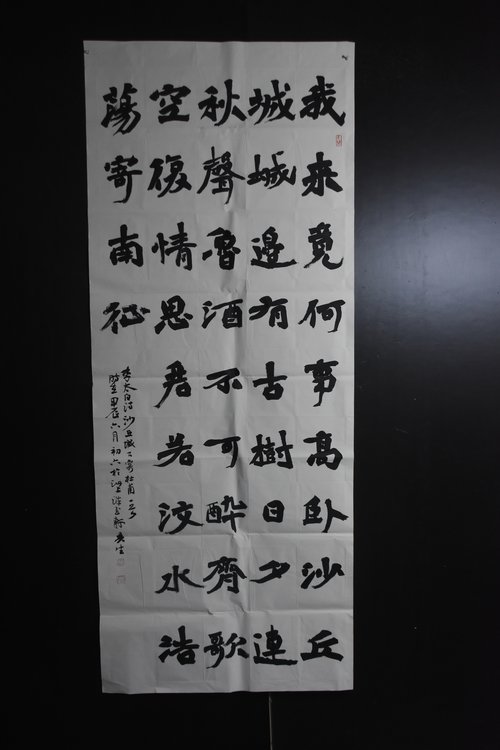 我来竟何事高臥沙丘
城城邊有古樹日夕連
秋聲魯酒不可酔齊歌
空復情思君若汶水浩
蕩寄南征
李太白詩沙丘城下寄杜甫一首
時在甲辰六月初六於